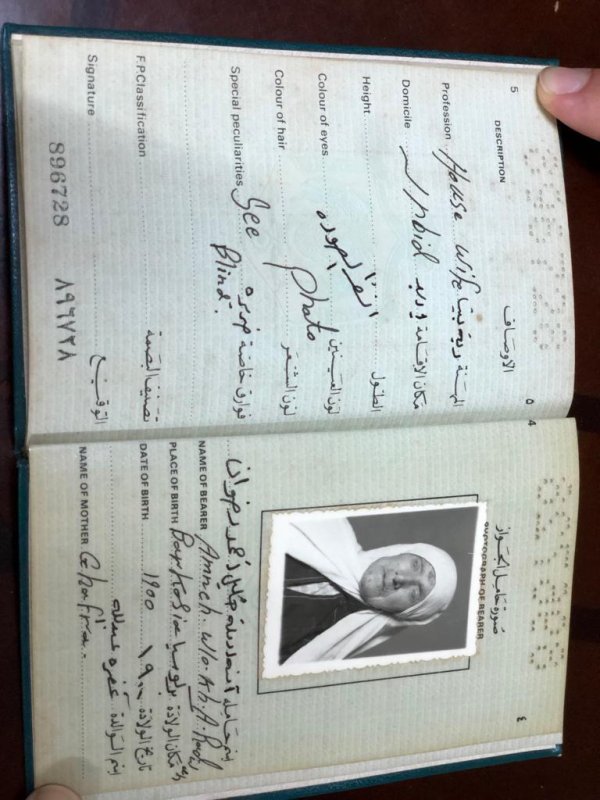 ٤
صورة حامل الجواز
PHOTOGRAPH OF BEARER
NAME OF BEARER Amneh w/o
PLACE OF BIRTH مكان الولادة
DATE OF BIRTH 1900 ١٩٠٠ تاريخ الولادة
اسم الوالدة
NAME OF MOTHER
4
5 ٥
DESCRIPTION الاوصاف
Profession House wife ربة بيت المهنة
Domicile Irbid اربد مكان الاقامة
Height الطول
انظر الصورة
Colour of eyes لون العينين
Photo
Colour of hair لون الشعر
See
Special peculiarities ضريرة فوارق خاصة
Blind.
F.P.Classification تصنيف البصمة
Signature التوقيع
896728 ٨٩٦٧٢٨